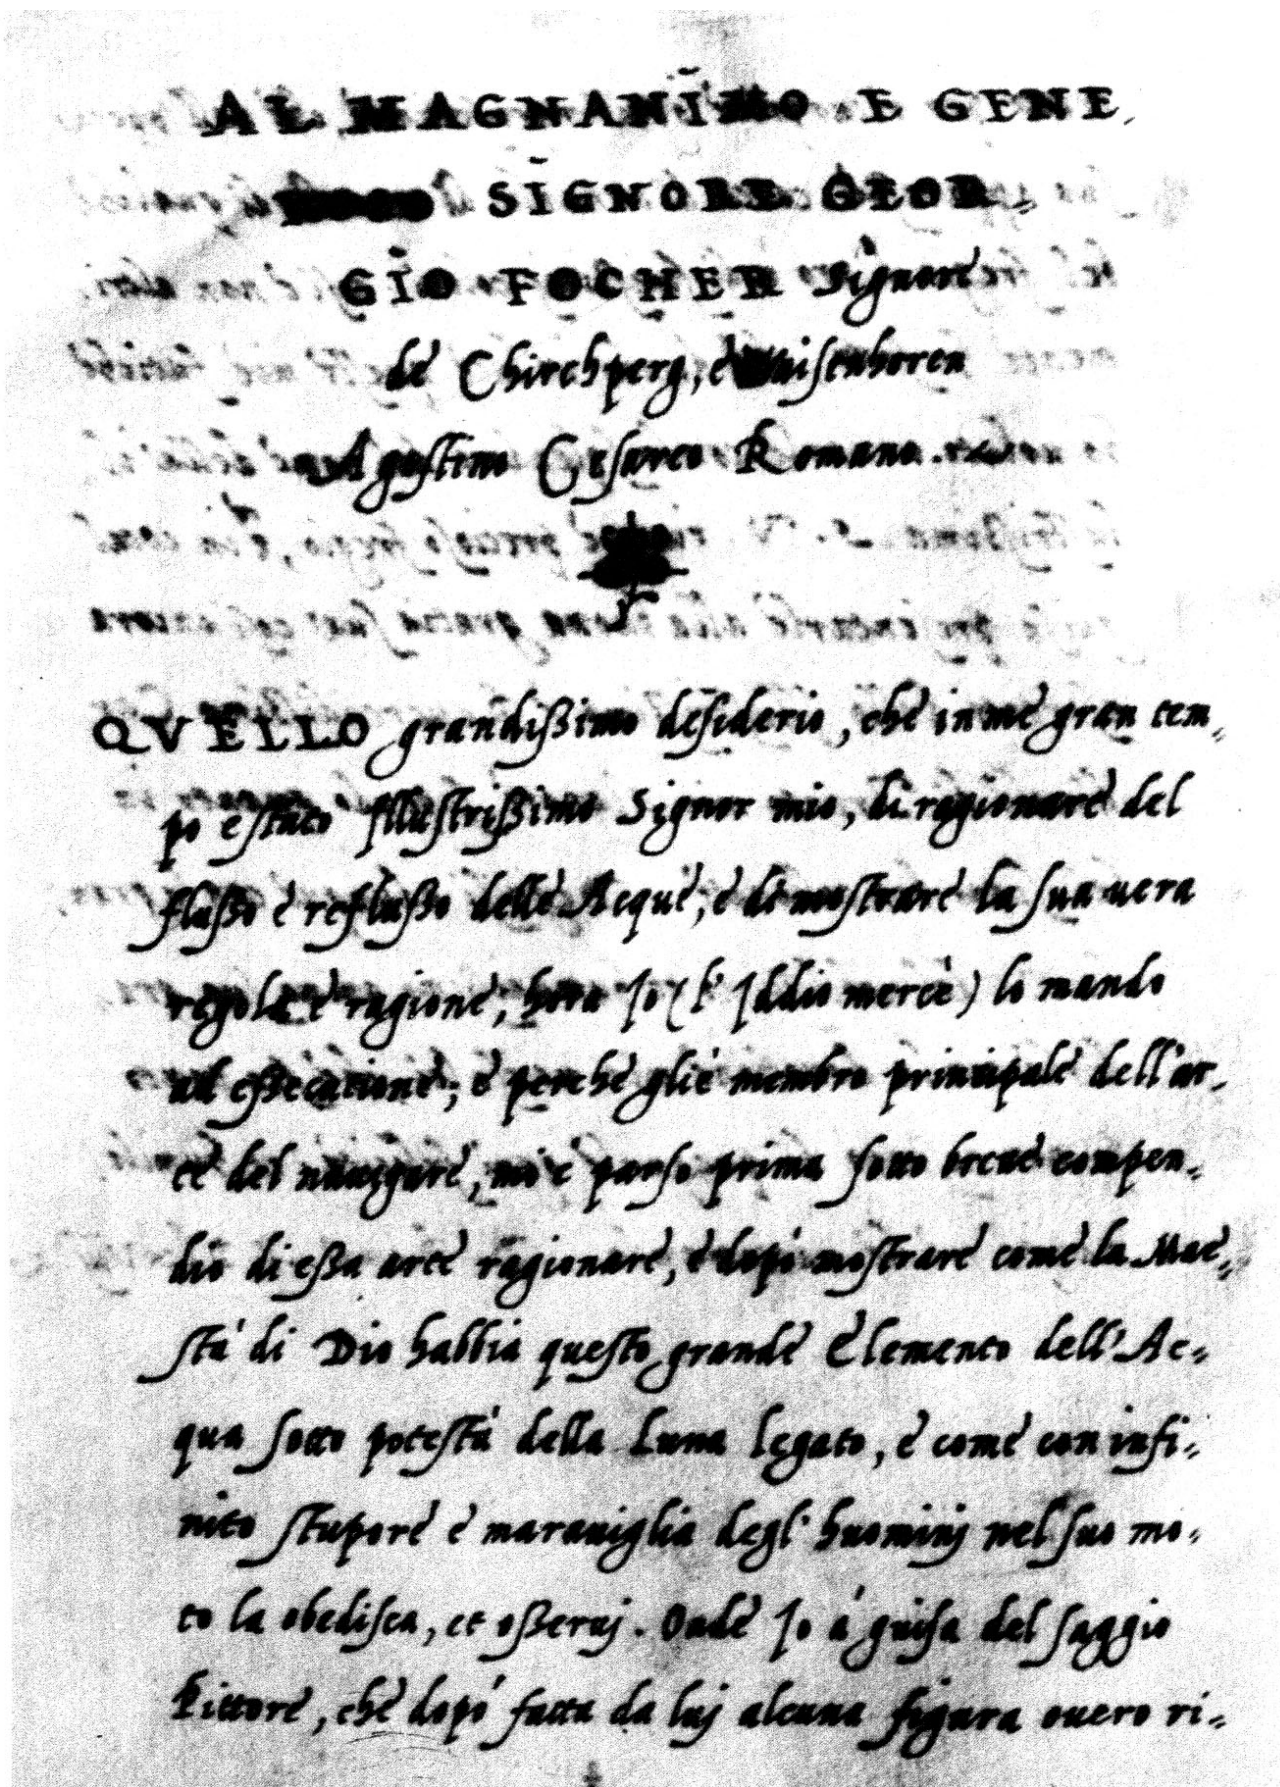 AL MAGNANIMO E GENE,
SIGNORE GEOR=
GIO FOCHER Signore
de Chirchperg, è Vaisenhoren
Agostino Cesareo Romano.
QVELLO grandißimo desiderio, chè in mè gran tem=
po è stato Illustrißimo Signor mio, di ragionarè del
flußo è reflußo dellè Acquè, è di mostrarè la sua uera
regola è ragionè, hora Io (k' Iddio mercè) lo mando
ad eßecutionè; è perchè gliè membro principalè dell'ar=
tè del nauigarè, mi è parso prima sotto breuè compen=
dio di eßa artè ragionarè, è dopò mostrarè comè la Mae=
stà di Dio habbia questo grandè Elemento dell'Ac=
qua sotto potestà della Luna legato, è comè con infi=
nito stuporè è marauiglia degl' huominj nel suo mo=
to la obedisca, et oßeruj. Ondè Io à guisa del saggio
Pittorè, chè dopò fatta da luj alcuna figura ouero ri=